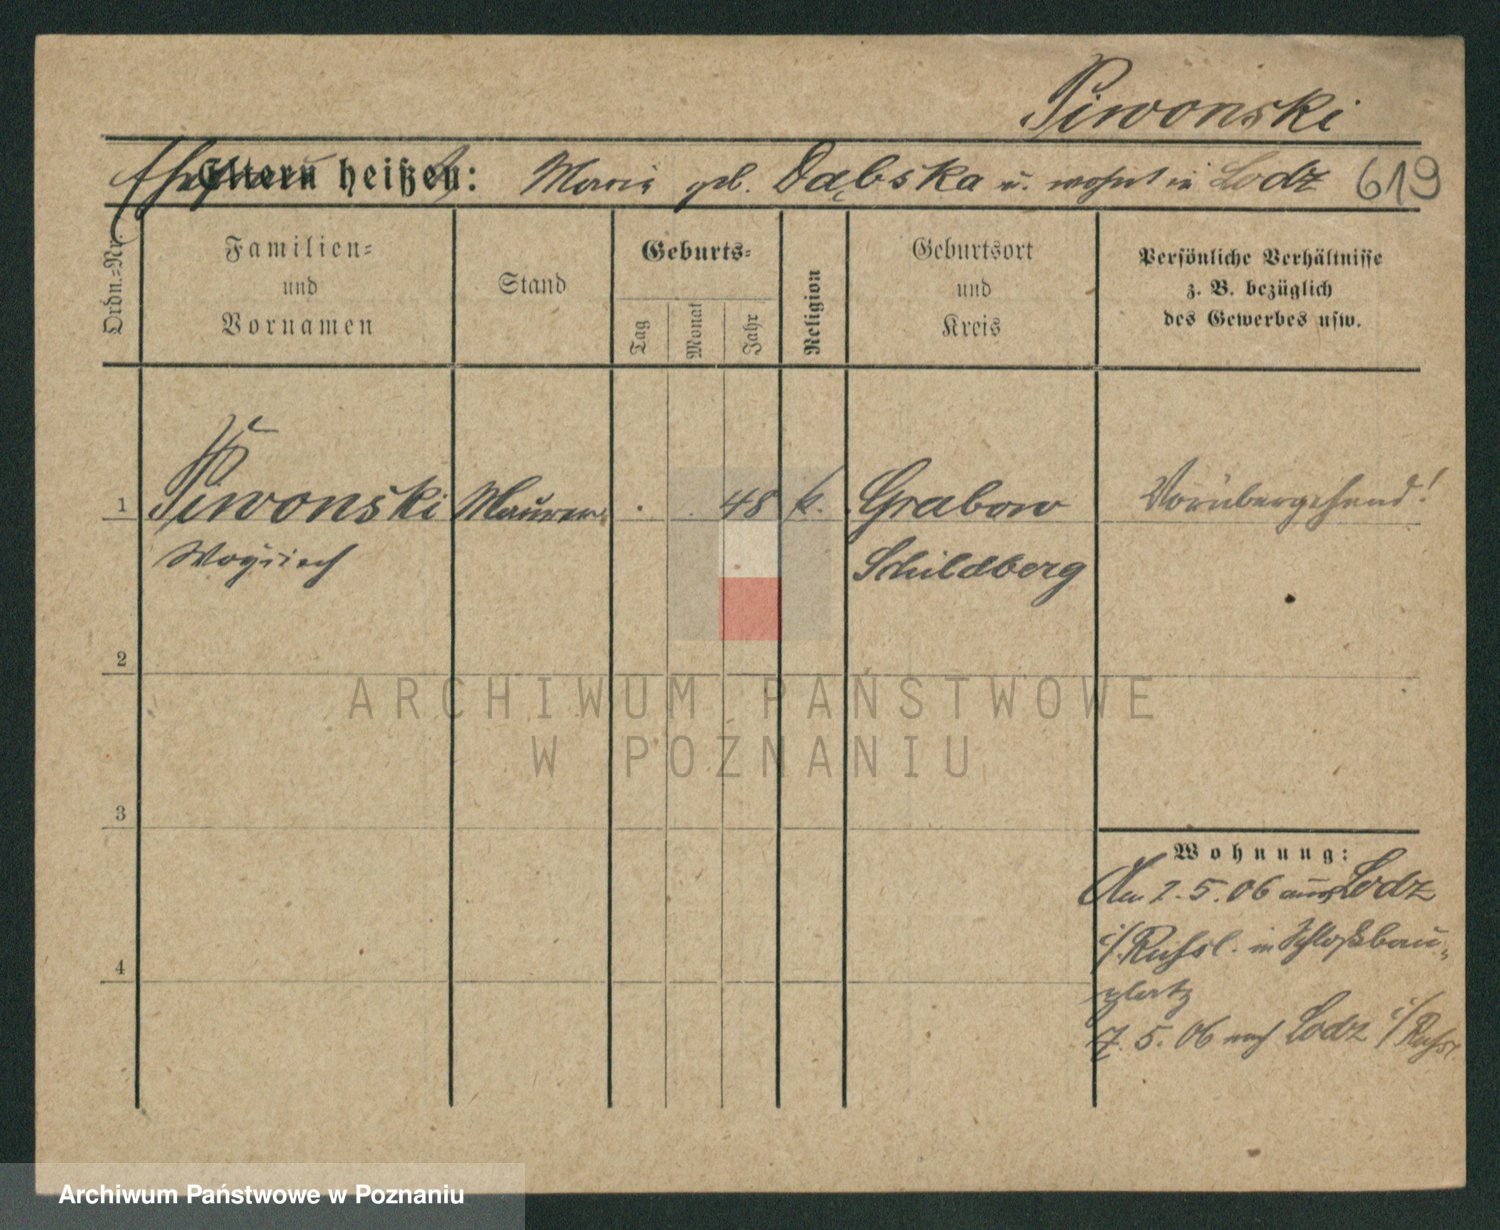 Piwonski
Eltern heißen: Maria geb. Dąbska u. wohnt in Lodz 619
Ordn.=Nr.
Familien=
und
Vornamen
Stand
Geburts=
Tag
Monat
Jahr
Religion
Geburtsort
und
Kreis
Persönliche Verhältnisse
z. B. bezüglich
des Gewerbes usw.
1 Piwonski Maurer . . 48 k. Grabow Vorübergehend!
Woyciech Schildberg
2
3
4
Wohnung:
Am 2.5.06 aus Lodz
i/Rußl. in Schloßbau=
platz
7.5.06 nach Lodz i/Rußl.
ARCHIWUM PAŃSTWOWE
W POZNANIU
Archiwum Państwowe w Poznaniu